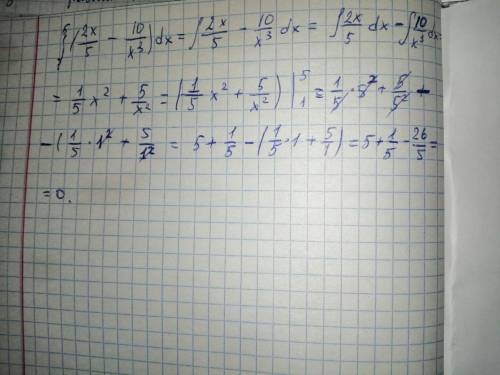 ∫(2x/5 − 10/x³)dx = ∫2x/5 − 10/x³ dx = ∫2x/5 dx − ∫10/x³ dx
= 1/5 x² + 5/x² = (1/5 x² + 5/x²) |₁⁵ = 1/5 · 5² + 5/5² −
− (1/5 · 1² + 5/1² = 5 + 1/5 − (1/5 · 1 + 5/1) = 5 + 1/5 − 26/5 =
= 0.